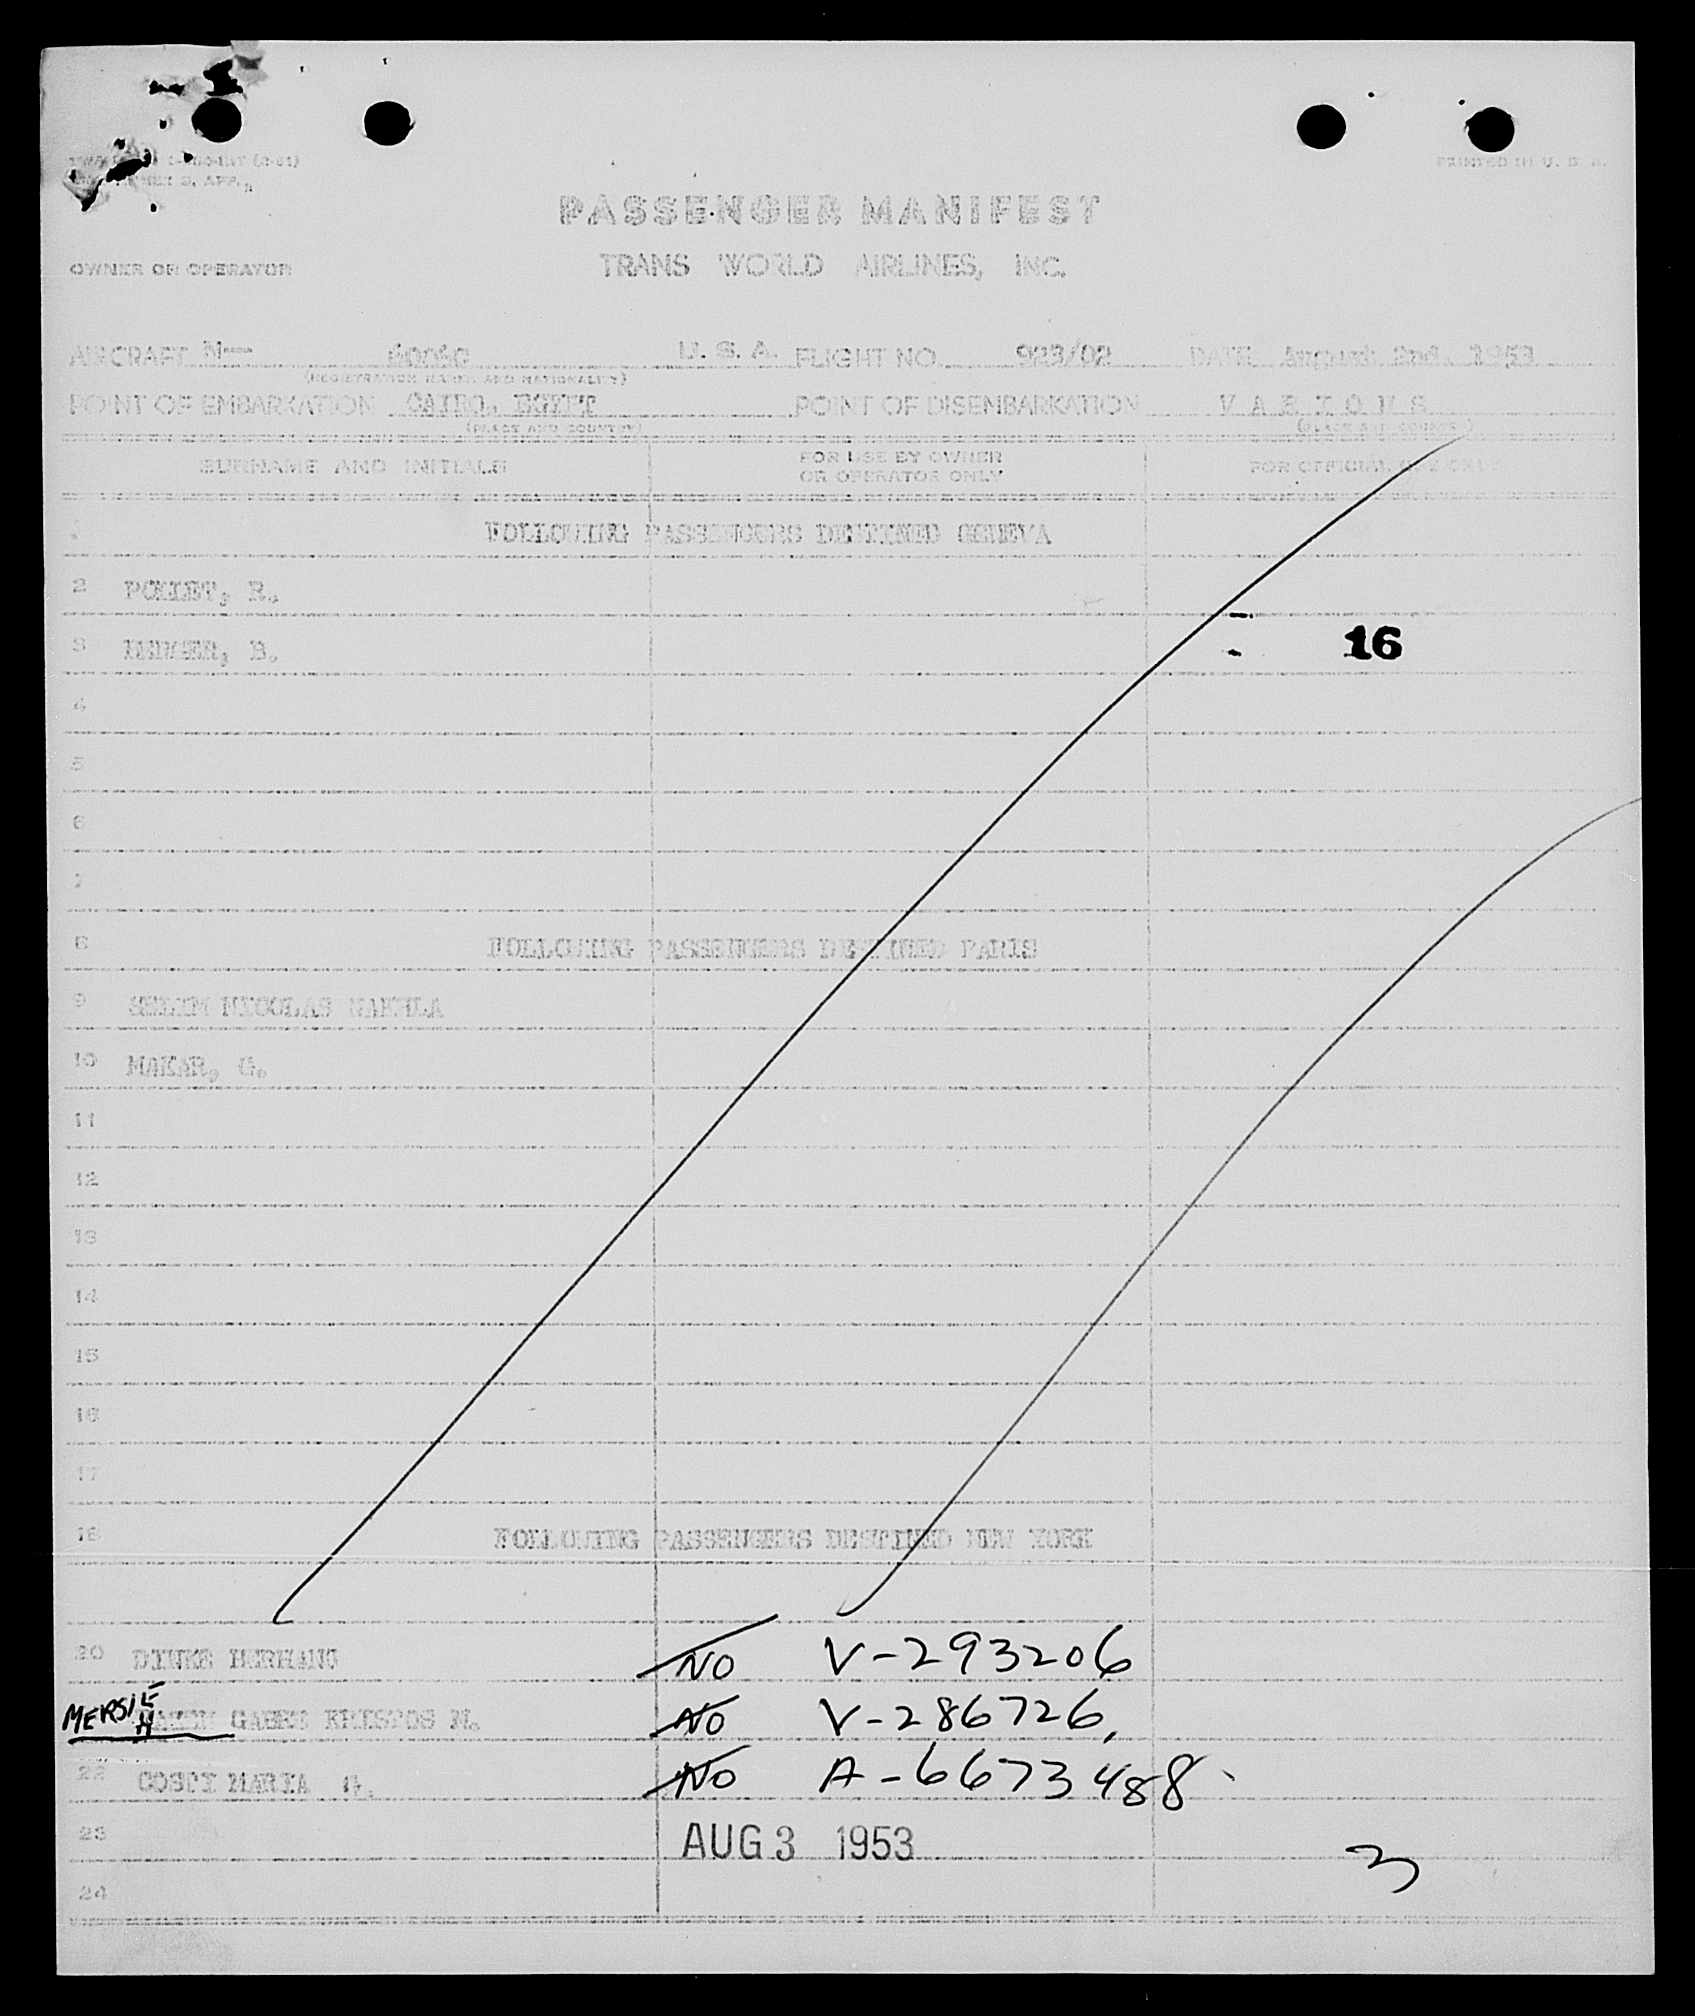 PRINTED IN U. S. A.
PASSENGER MANIFEST
OWNER OR OPERATOR TRANS WORLD AIRLINES, INC.
AIRCRAFT N— U. S. A. FLIGHT NO. 923/02 DATE August 2nd. 1953
(REGISTRATION MARKS AND NATIONALITY)
POINT OF EMBARKATION CAIRO, EGYPT POINT OF DISEMBARKATION V A R I O U S
(PLACE AND COUNTRY) (PLACE AND COUNTRY)
SURNAME AND INITIALS FOR USE BY OWNER OR OPERATOR ONLY FOR OFFICIAL USE ONLY
FOLLOWING PASSENGERS DESTINED GENEVA
2 R.
3 B. 16
4
5
6
7
8 FOLLOWING PASSENGERS DESTINED PARIS
9 SELIM NICOLAS NAKHLA
10 MAKAR, G.
11
12
13
14
15
16
17
18 FOLLOWING PASSENGERS DESTINED NEW YORK
20 DINKE BERHANU NO V-293206
MERSIE H GABRE KRISTOS M. NO V-286726
22 COSCI MARIA G. NO A-6673488
23 AUG 3 1953 3
24